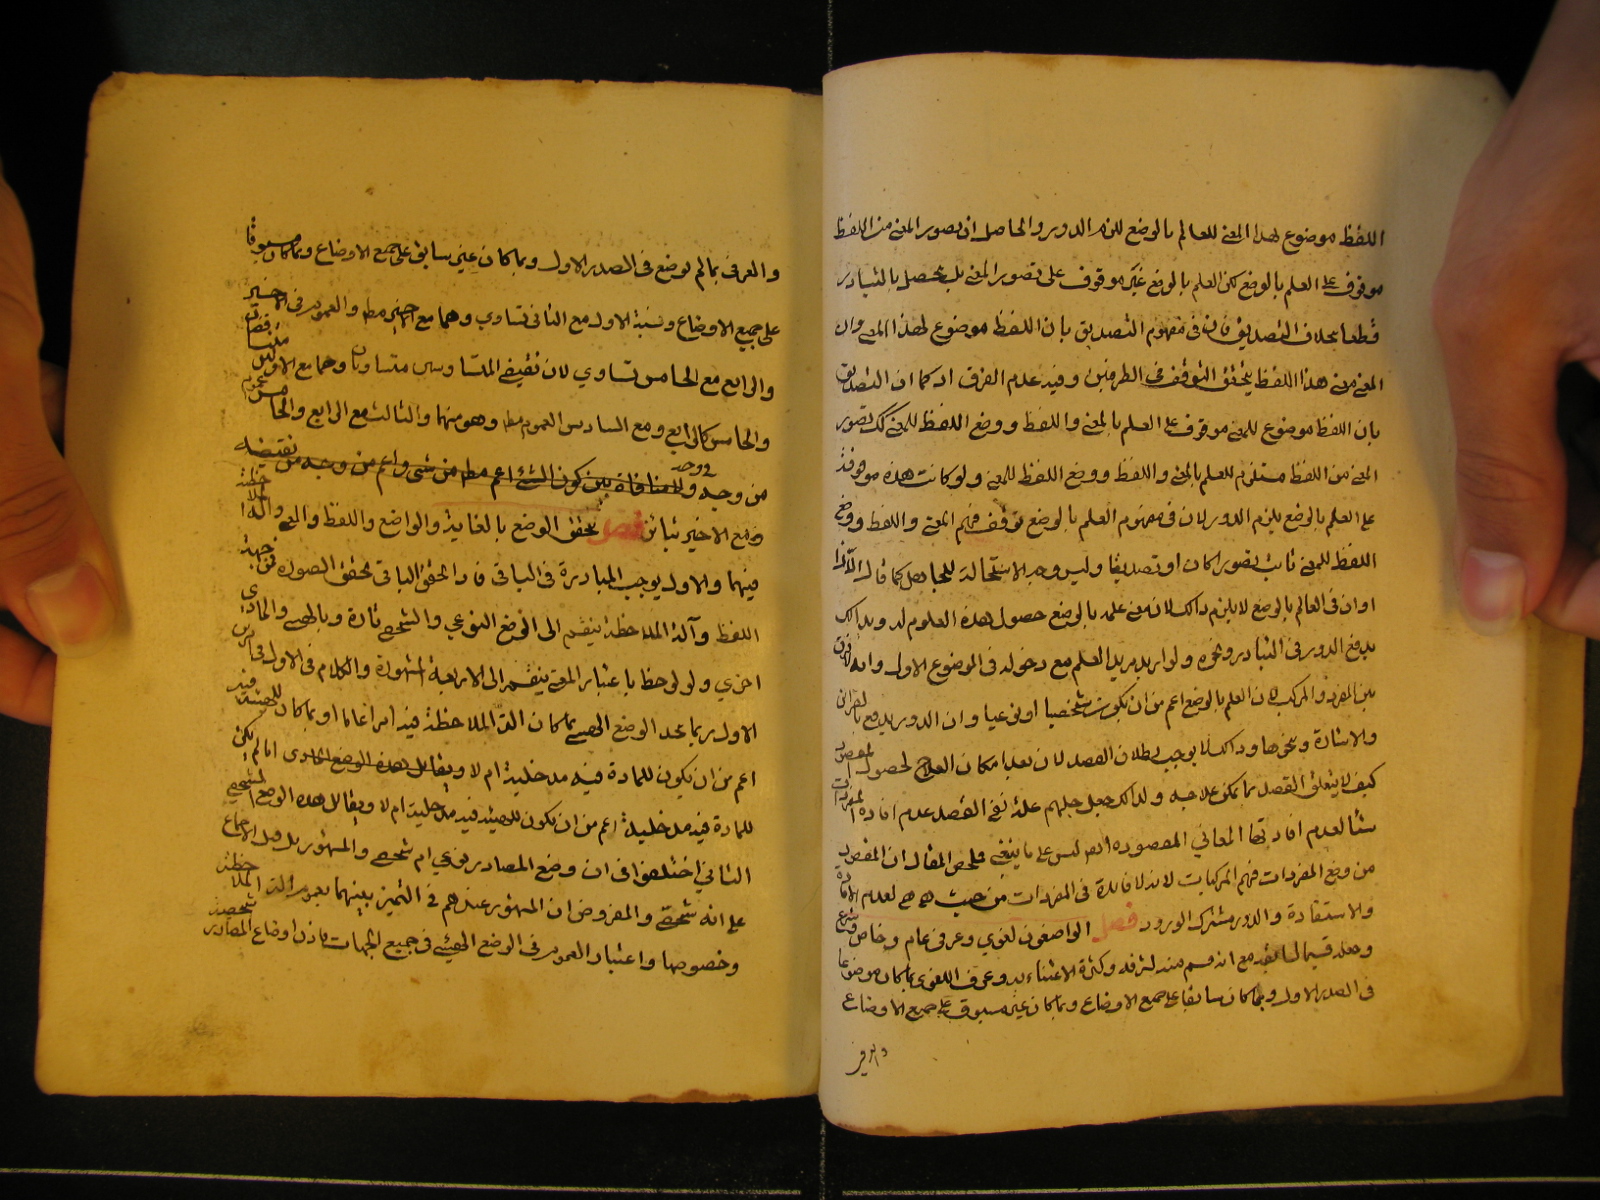 اللفظ موضوع لهذا المعنى للعالم بالوضع للزم الدور والحاصل ان تصور المعنى من اللفظ
موقوف على العلم بالوضع لكن العلم بالوضع غير موقوف على تصور المعنى بل يحصل بالتبادر
قطعا بخلاف التصديق فان فى مفهوم التصديق بان اللفظ موضوع لهذا المعنى وان
المعنى معنى هذا اللفظ يتحقق التوقف من الطرفين وفيه عدم الفرق اذ كما ان التصديق
بان اللفظ موضوع للمعنى موقوف على العلم بالمعنى واللفظ ووضع اللفظ للمعنى كك تصور
المعنى من اللفظ مستلزم للعلم بالمعنى واللفظ ووضع اللفظ للمعنى ولو كانت هذه موقوفة
على العلم بالوضع يلزم الدور لان فى مفهوم العلم بالوضع توقف فهم المعنى واللفظ ووضع
اللفظ للمعنى ثابت تصورا كان او تصديقا وليس وجه الاستحالة للجاهل كما قال
اوان فى العالم بالوضع لا يلزم ذلك لان معنى علمه بالوضع حصول هذه العلوم له وبذلك
يدفع الدور فى التبادر ونحوه ولو اريد مزيد العلم مع دخوله فى الموضوع الاول وانه
بين المفرد والمركب لان العلم بالوضع اعم من ان يكون شخصيا او نوعيا وان الدور يدفع بالقرائن
والاشارة ونحوها وذلك لا يوجب بطلان القصد لان بعد امكان العلاج لحصول المقصود
كيف لا يتعلق القصد بما يمكن علاجه ولذلك جعل جلهم علة نفى القصد عدم افادة المفردات
شيئا لعدم افادتها المعاني المقصودة ليس على ما ينبغى فلخص المقال ان المقصود
من وضع المفردات فهم المركبات لانه لا فائدة فى المفردات من حيث هى هى لعدم الافادة
والاستفادة والدور مشترك الورود فصل الواضعون لغوي وعرفى عام وخاص وشرع
وجعله قسيما لما تقدم مع انه قسم منه لشرفه وكثرة الاعتناء به وعرف اللغوى بما كان موضوعا
فى الصدر الاول وبما كان سابقا على جميع الاوضاع وبما كان غير مسبوق على جميع الاوضاع
والعرفى
والعرفى بما لم يوضع فى الصدر الاول وبما كان غير سابق على جميع الاوضاع وبما كان مسبوقا
على جميع الاوضاع ونسبة الاول مع الثانى تساوي وهما مع الاخير مط والعموم فى الاخير
والرابع مع الخامس تساوي لان نقيضى المتساويين متساويان وهما مع الاولين
والخامس كالرابع ومع السادس العموم مط وهو منهما والثالث مع الرابع والخامس عموم
من وجه ولا منافاة بين كون الشئ اعم مط من شئ واعم من وجه من نقيضه
ومع الاخير تباين فصل تحقق الوضع بالغاية والواضع واللفظ والمعنى وآلة الملاحظة
فيهما والاول يوجب المبادرة فى الباقى فاذا تحقق الباقى تحقق الصورة فمن جهة
اللفظ وآلة الملاحظة ينقسم الى الوضع النوعي والشخصى تارة وبالهيئى والمادي
اخرى ولو لوحظ باعتبار المعنى ينقسم الى الاربعة المشهورة والكلام فى الاول فى
الاول ربما يحد الوضع الهيئى بما كان آلة الملاحظة فيه امرا عاما او بما كان للهيئة فيه
اعم من ان يكون للمادة فيه مدخلية ام لا ويقابل هذه الوضع المادى اما لم يكن
للمادة فيه مدخلية اعم من ان يكون للهيئة فيه مدخلية ام لا ويقابل هذه الوضع الشخصى
الثاني اختلفوا فى ان وضع المصادر نوعي ام شخصى والمشهور بل قيل الاجماع
على انه شخصى والمفروض ان المشهور عندهم فى التميز بينهما بعموم آلة الملاحظة
وخصوصها واعتبار العموم فى الوضع الهيئى فى جميع الجهات فاذن اوضاع المصادر شخصية